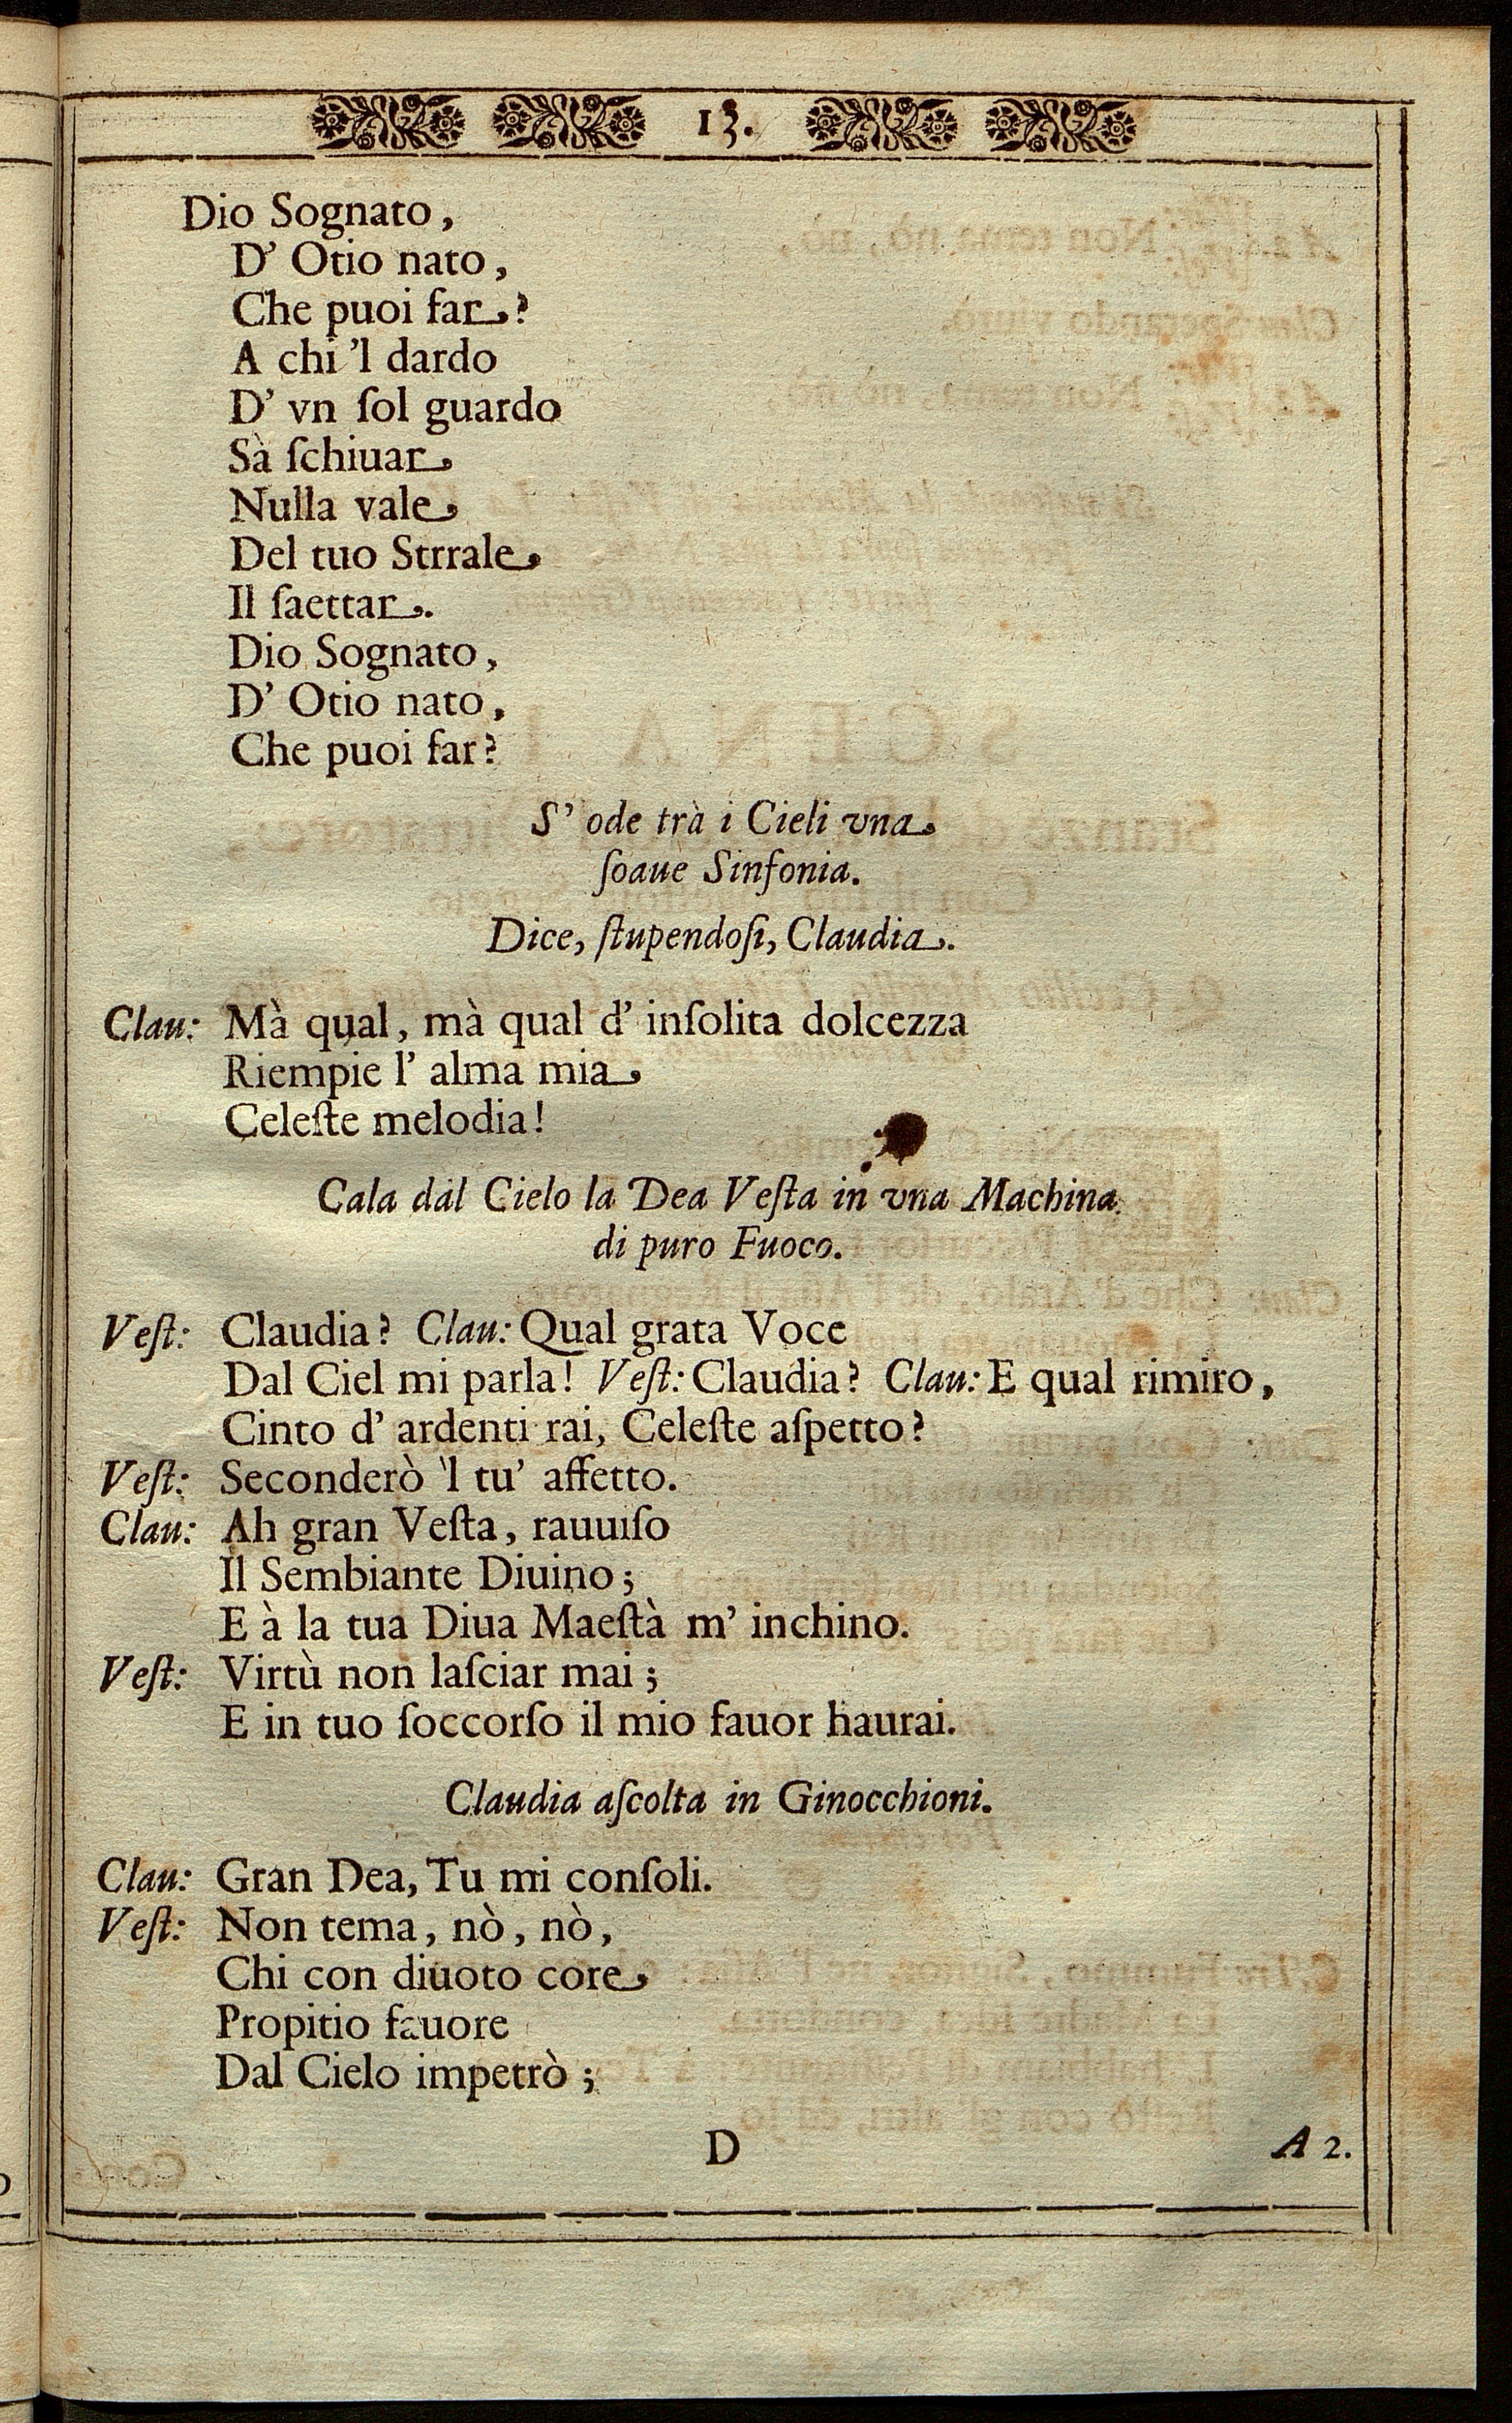 13.
Dio Sognato,
D' Otio nato,
Che puoi far?
A chi 'l dardo
D' vn ſol guardo
Sà ſchiuar
Nulla vale
Del tuo Strrale
Il ſaettar.
Dio Sognato,
D' Otio nato,
Che puoi far?
S' ode trà i Cieli vna
ſoaue Sinfonia.
Dice, ſtupendoſi, Claudia.
Clau: Mà qual, mà qual d' inſolita dolcezza
Riempie l' alma mia
Celeſte melodia!
Cala dal Cielo la Dea Veſta in vna Machina
di puro Fuoco.
Veſt: Claudia? Clau: Qual grata Voce
Dal Ciel mi parla! Veſt: Claudia? Clau: E qual rimiro,
Cinto d' ardenti rai, Celeſte aſpetto?
Veſt: Seconderò 'l tu' affetto.
Clau: Ah gran Veſta, rauuiſo
Il Sembiante Diuino;
E à la tua Diua Maeſtà m' inchino.
Veſt: Virtù non laſciar mai;
E in tuo ſoccorſo il mio fauor haurai.
Claudia aſcolta in Ginocchioni.
Clau: Gran Dea, Tu mi conſoli.
Veſt: Non tema, nò, nò,
Chi con diuoto core
Propitio fauore
Dal Cielo impetrò;
D A 2.